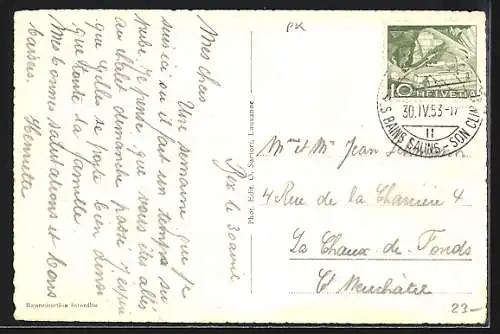 Bex le 30 avril
Mes chers
Une semaine que je
suis ici ou il fait un temps su
perbe. Je pense que vous êtes allés
au chalet dimanche passé j'espère
que Gilles se porte bien ainsi
que toute la famille.
Mes bonnes salutations et bons
baisers. Henriette
Reproduction interdite
Phot. Edit. O. Sartori, Lausanne
PK
10 HELVETIA
30.IV.53-17
BAINS SALINS - SON
Mme et Mr Jean
4 Rue de la Charrière 4
La Chaux-de-Fonds
Ct Neuchâtel
23-